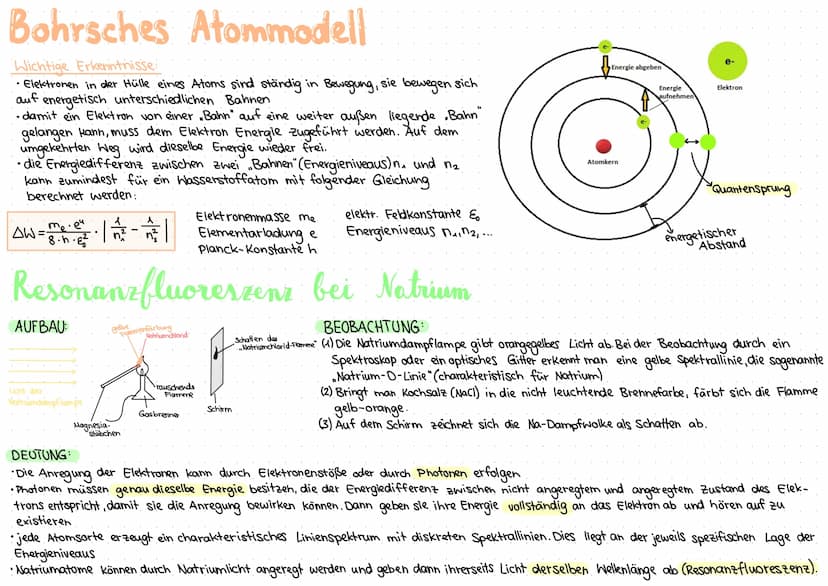 Bohrsches Atommodell
Wichtige Erkenntnisse:
• Elektronen in der Hülle eines Atoms sind ständig in Bewegung, sie bewegen sich
auf energetisch unterschiedlichen Bahnen
• damit ein Elektron von einer „Bahn" auf eine weiter außen liegende „Bahn"
gelangen kann, muss dem Elektron Energie zugeführt werden. Auf dem
umgekehrten Weg wird dieselbe Energie wieder frei.
• die Energiedifferenz zwischen zwei „Bahnen" (Energieniveaus) n₁ und n₂
kann zumindest für ein Wasserstoffatom mit folgender Gleichung
berechnet werden:
ΔW = (mₑ · e⁴)/(8 · h · ε₀²) · | 1/n₁² - 1/n₂² |
Elektronenmasse mₑ
Elementarladung e
Planck-Konstante h
elektr. Feldkonstante ε₀
Energieniveaus n₁, n₂, ...
e-
Energie abgeben
Energie
aufnehmen
e-
Atomkern
e-
Elektron
Quantensprung
energetischer
Abstand
Resonanzfluoreszenz bei Natrium
AUFBAU:
Licht der
Natriumdampflampe
gelbe
Flammenfärbung
rauschende
Flamme
Gasbrenner
Magnesia-
stäbchen
Schatten der
„Natriumchlorid-Flamme"
Schirm
BEOBACHTUNG:
(1) Die Natriumdampflampe gibt orangegelbes Licht ab. Bei der Beobachtung durch ein
Spektroskop oder ein optisches Gitter erkennt man eine gelbe Spektrallinie, die sogenannte
„Natrium-D-Linie" (charakteristisch für Natrium)
(2) Bringt man Kochsalz (NaCl) in die nicht leuchtende Brennefarbe, färbt sich die Flamme
gelb-orange.
(3) Auf dem Schirm zeichnet sich die Na-Dampfwolke als Schatten ab.
DEUTUNG:
• Die Anregung der Elektronen kann durch Elektronenstöße oder durch Photonen erfolgen
• Photonen müssen genau dieselbe Energie besitzen, die der Energiedifferenz zwischen nicht angeregtem und angeregtem Zustand des Elek-
trons entspricht, damit sie die Anregung bewirken können. Dann geben sie ihre Energie vollständig an das Elektron ab und hören auf zu
existieren
• jede Atomsorte erzeugt ein charakteristisches Linienspektrum mit diskreten Spektrallinien. Dies liegt an der jeweils spezifischen Lage der
Energieniveaus
• Natriumatome können durch Natriumlicht angeregt werden und geben dann ihrerseits Licht derselben Wellenlänge ab (Resonanzfluoreszenz).